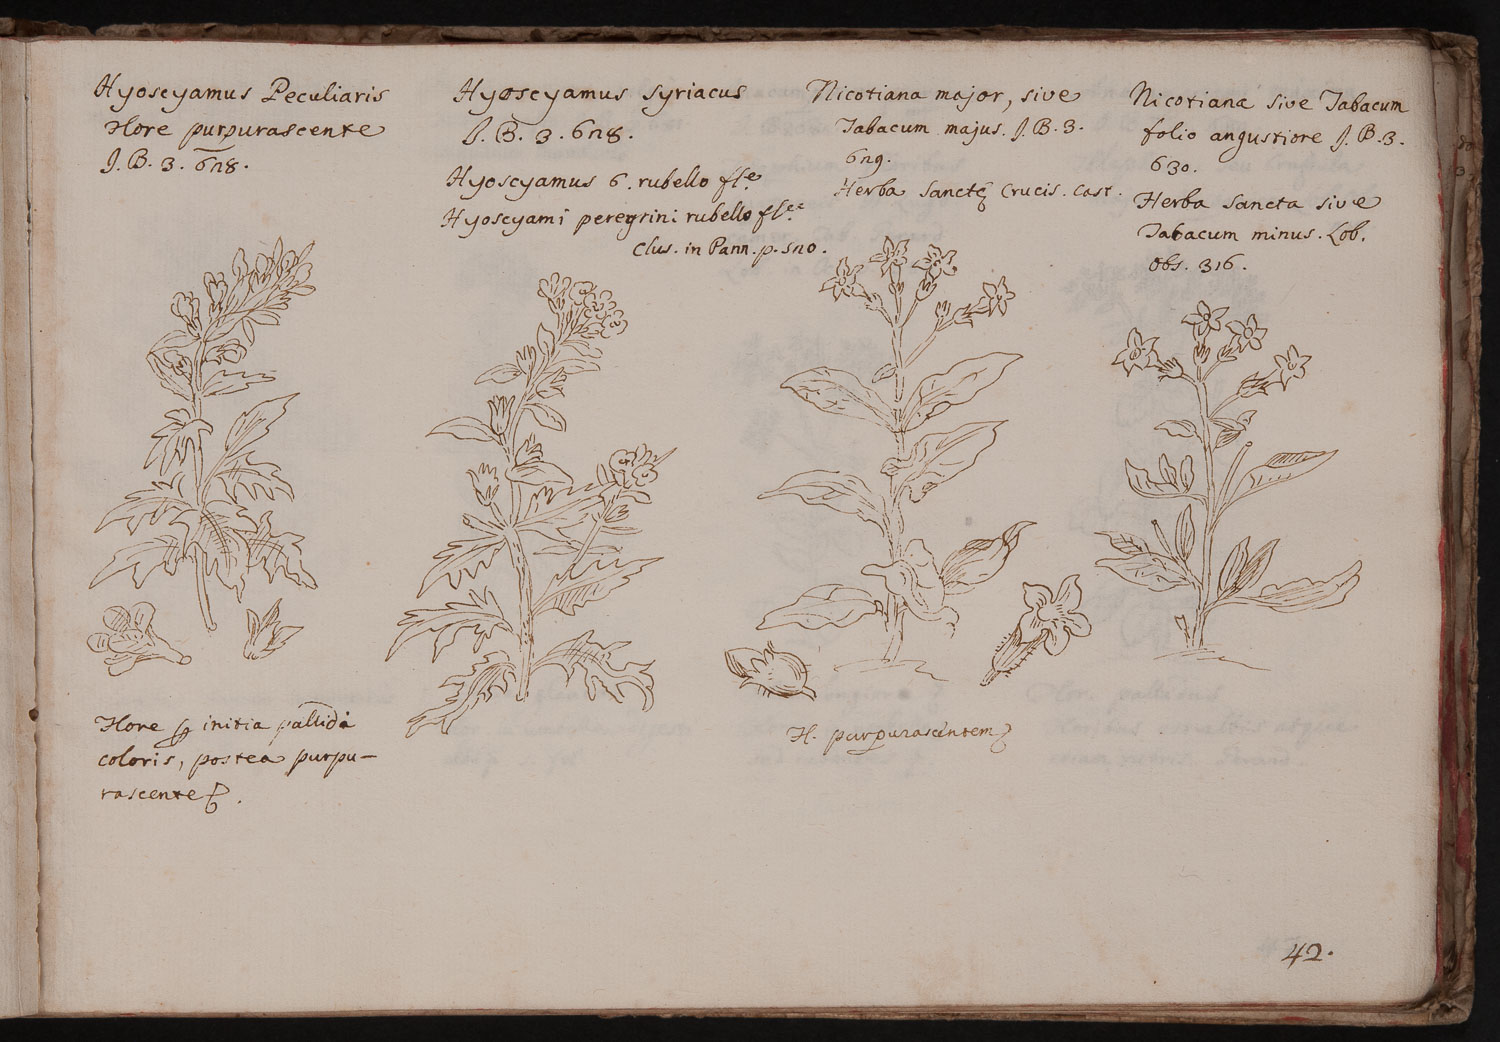 Hyoscyamus Peculiaris
flore purpurascente
J. B. 3. 628.
Hyoscyamus Syriacus
J. B. 3. 628.
Hyoscyamus 6. rubello fl.e
Hyoscyami peregrini rubello fl.e
Clus. in Pann. p. 520.
Nicotiana major, sive
Tabacum majus. J. B. 3.
629.
Herba Sanctę Crucis. Cast.
Nicotiana sive Tabacum
folio angustiore J. B. 3.
630.
Herba Sancta sive
Tabacum minus. Lob.
obs. 316.
Flore initia pallida
coloris, postea purpu-
rascente
fl. purpurascentem
42.